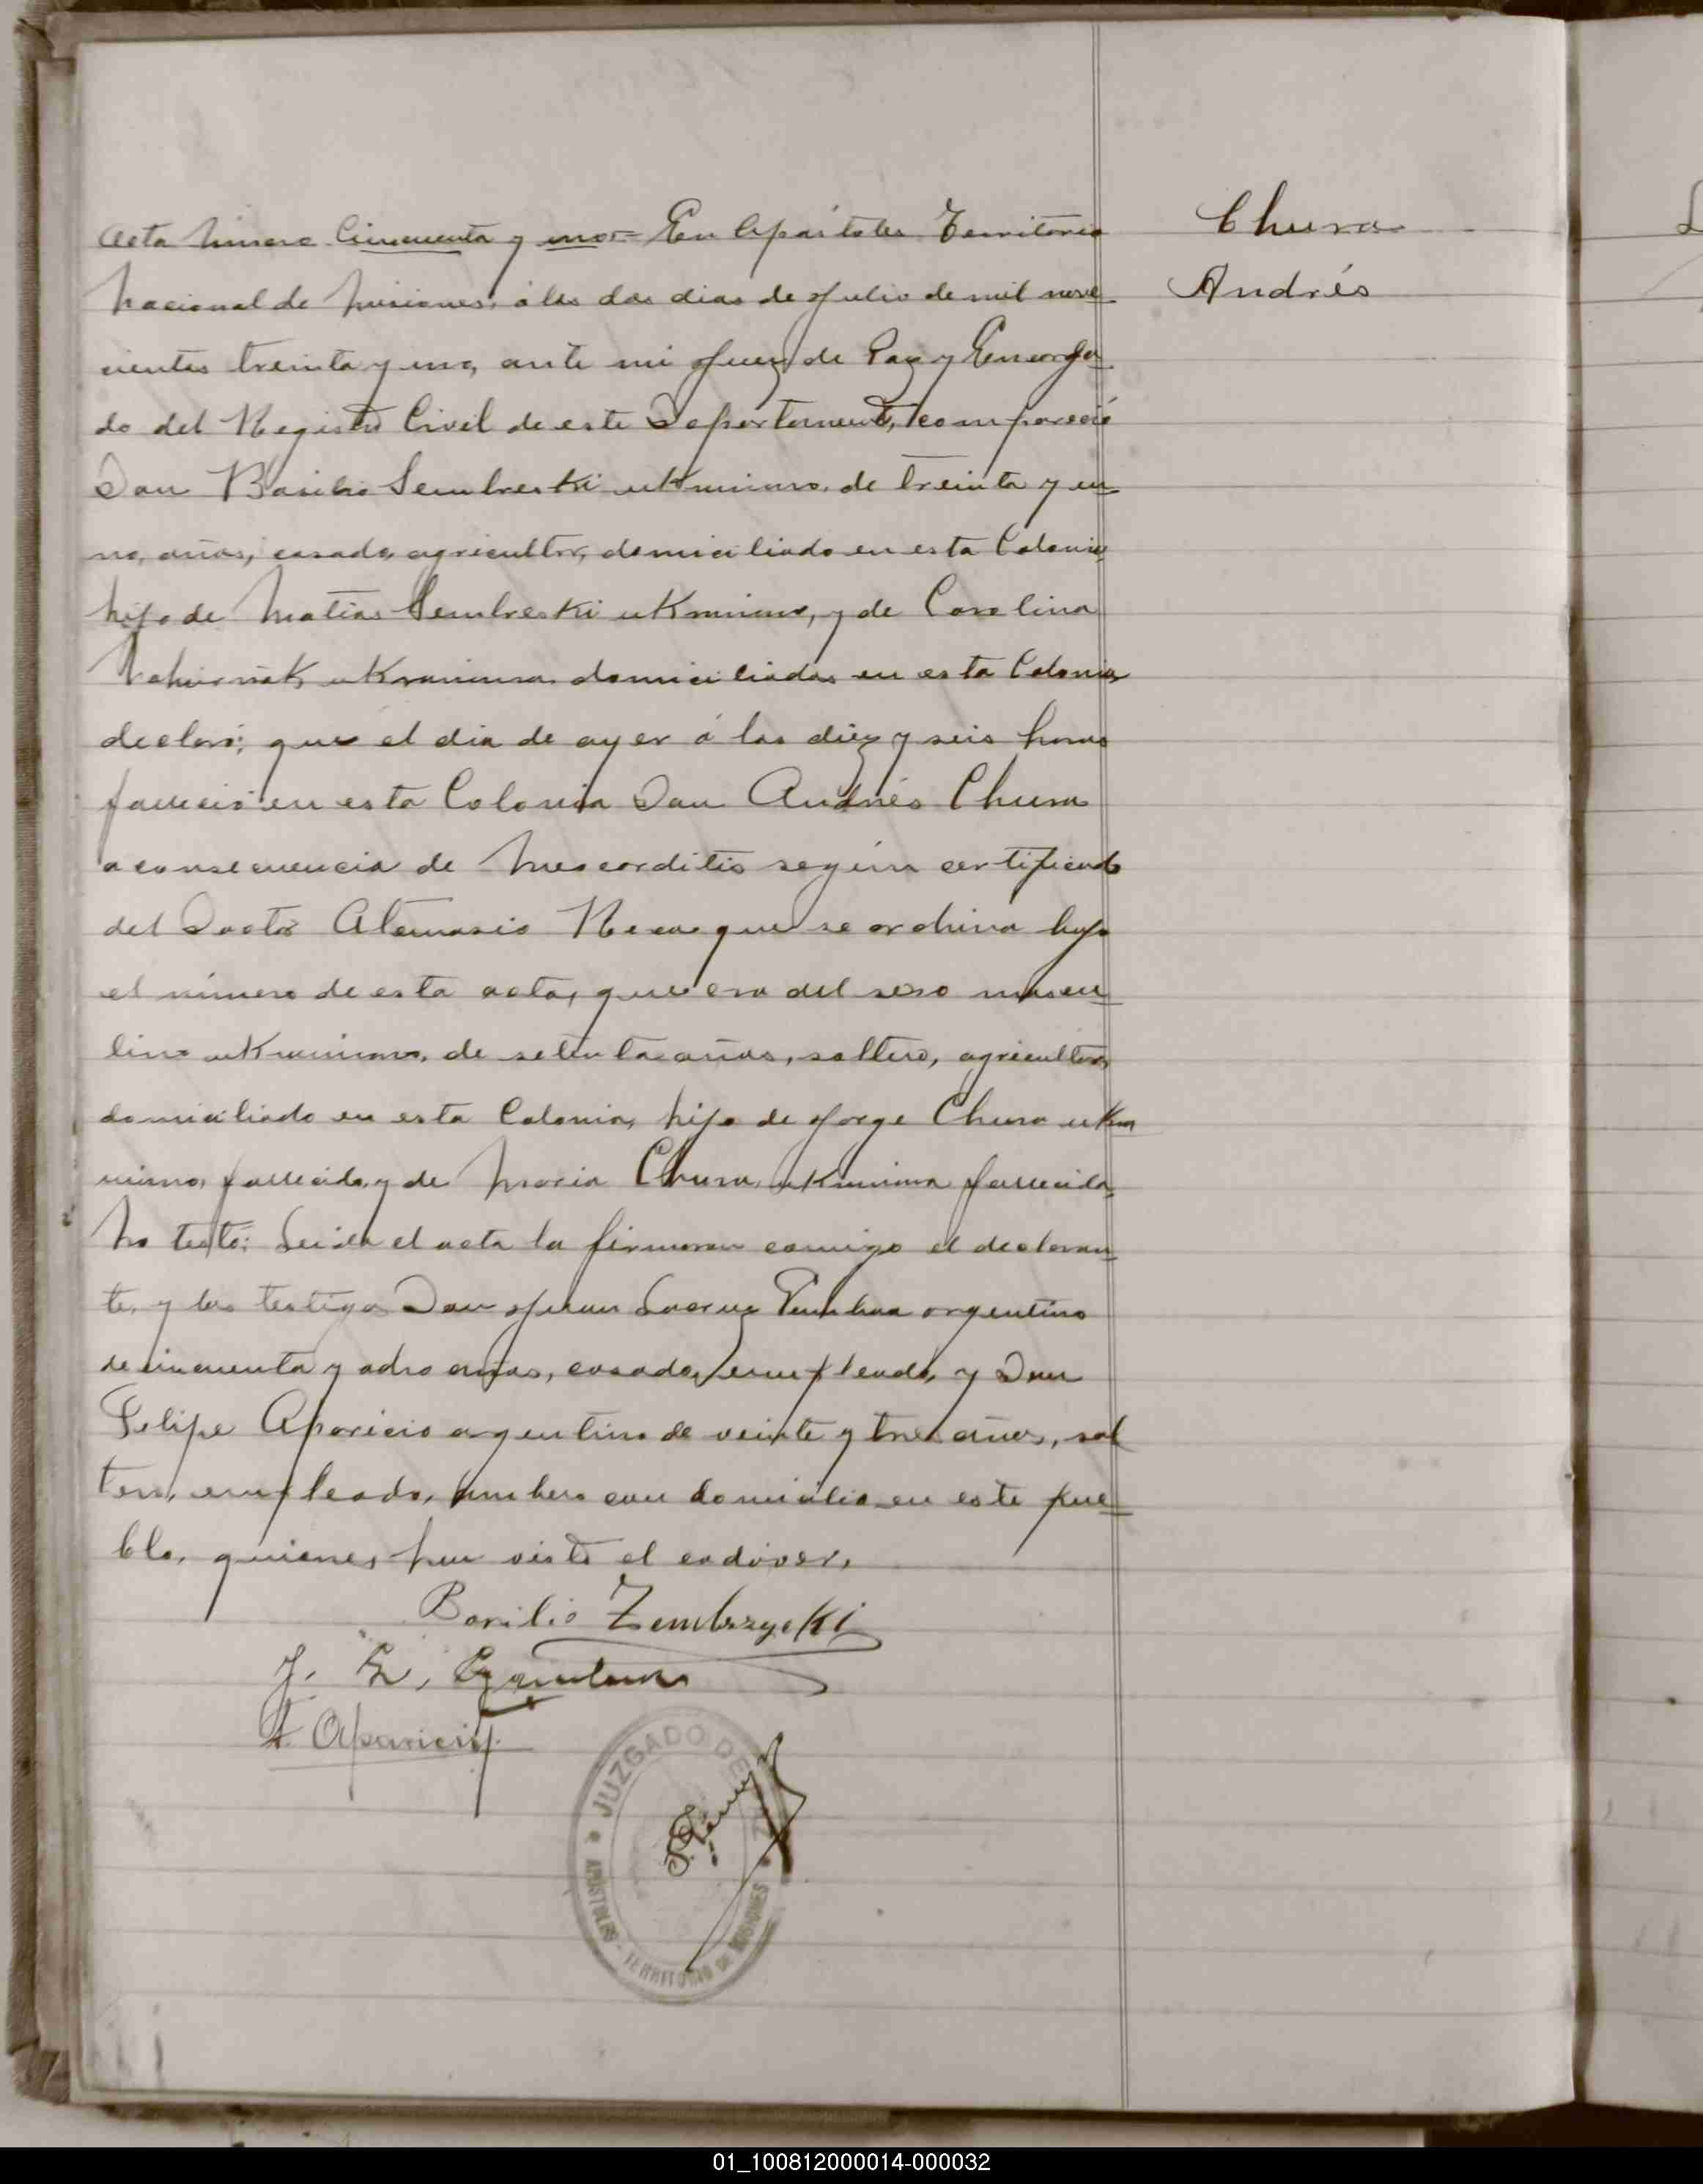 Acta número Cincuenta y uno = En Apóstoles Territorio
Nacional de Misiones, á los dos dias de Julio de mil nove-
cientos treinta y uno, ante mi Juez de Paz y Encarga-
do del Registro Civil de este Departamento, compareció
Don Basilio Sembreski ukraniano, de treinta y un-
no, años, casado, agricultor, domiciliado en esta Colonia,
hijo de Matias Sembreski ukraniano, y de Carolina
ukraniana domiciliados en esta Colonia
declaró; que el dia de ayer á las diez y seis horas
falleció en esta Colonia Don Andrés Chura
a consecuencia de según certificado
del Doctor Atanasio que se archiva bajo
el número de esta acta, que era del sexo mascu-
lino ukraniano, de setenta años, soltero, agricultor,
domiciliado en esta Colonia, hijo de Jorge Chura ukra
niano, fallecido, y de Maria Chura, ukraniana fallecida,
No testó; Leida el acta la firmaron conmigo el declaran-
te, y los testigos Don Juan argentino
de cincuenta y ocho años, casado, empleado, y Don
Felipe Aparicio argentino de veinte y tres años, sol
tero, empleado, ambos con domicilio en este pue-
blo, quienes han visto el cadáver.
Basilio Zembrzycki
F. Aparicio
Chura
Andrés
JUZGADO DE
APÓSTOLES - TERRITORIO DE MISIONES
01_100812000014-000032